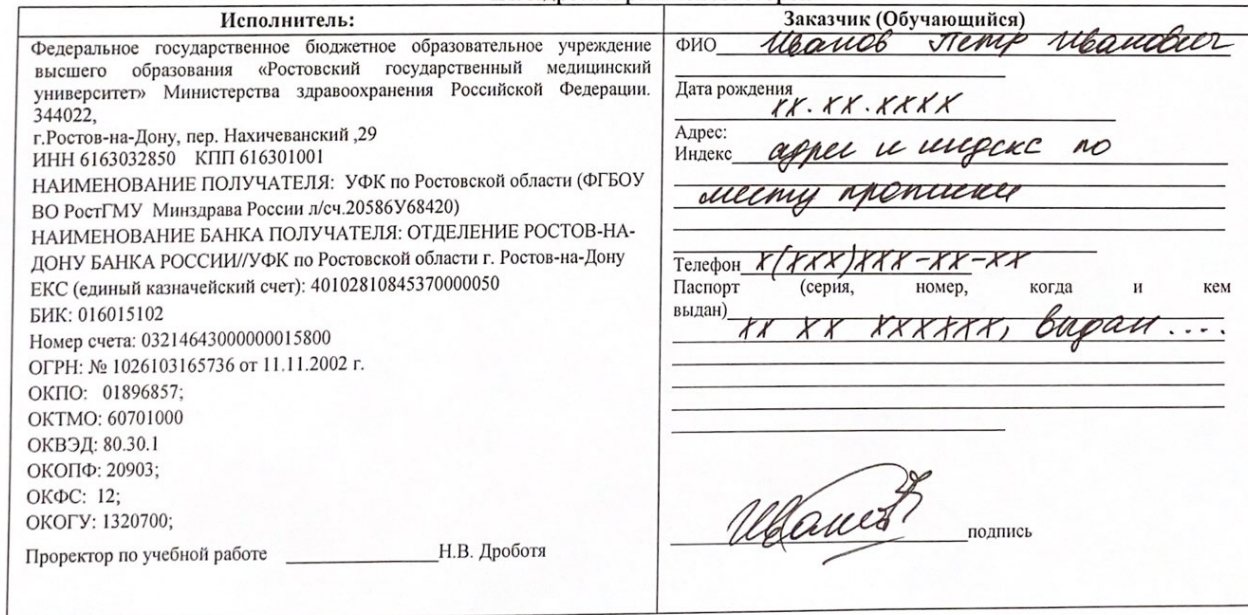 Исполнитель:
Федеральное государственное бюджетное образовательное учреждение
высшего образования «Ростовский государственный медицинский
университет» Министерства здравоохранения Российской Федерации.
344022,
г.Ростов-на-Дону, пер. Нахичеванский ,29
ИНН 6163032850 КПП 616301001
НАИМЕНОВАНИЕ ПОЛУЧАТЕЛЯ: УФК по Ростовской области (ФГБОУ
ВО РостГМУ Минздрава России л/сч.20586У68420)
НАИМЕНОВАНИЕ БАНКА ПОЛУЧАТЕЛЯ: ОТДЕЛЕНИЕ РОСТОВ-НА-
ДОНУ БАНКА РОССИИ//УФК по Ростовской области г. Ростов-на-Дону
ЕКС (единый казначейский счет): 40102810845370000050
БИК: 016015102
Номер счета: 03214643000000015800
ОГРН: № 1026103165736 от 11.11.2002 г.
ОКПО: 01896857;
ОКТМО: 60701000
ОКВЭД: 80.30.1
ОКОПФ: 20903;
ОКФС: 12;
ОКОГУ: 1320700;
Проректор по учебной работе Н.В. Дроботя
Заказчик (Обучающийся)
ФИО Иванов Петр Иванович
Дата рождения
хх.хх.хххх
Адрес:
Индекс адрес и индекс по
месту прописки
Телефон х(ххх)ххх-хх-хх
Паспорт (серия, номер, когда и кем
выдан)
хх хх хххххх, выдан ....
Иванов
подпись